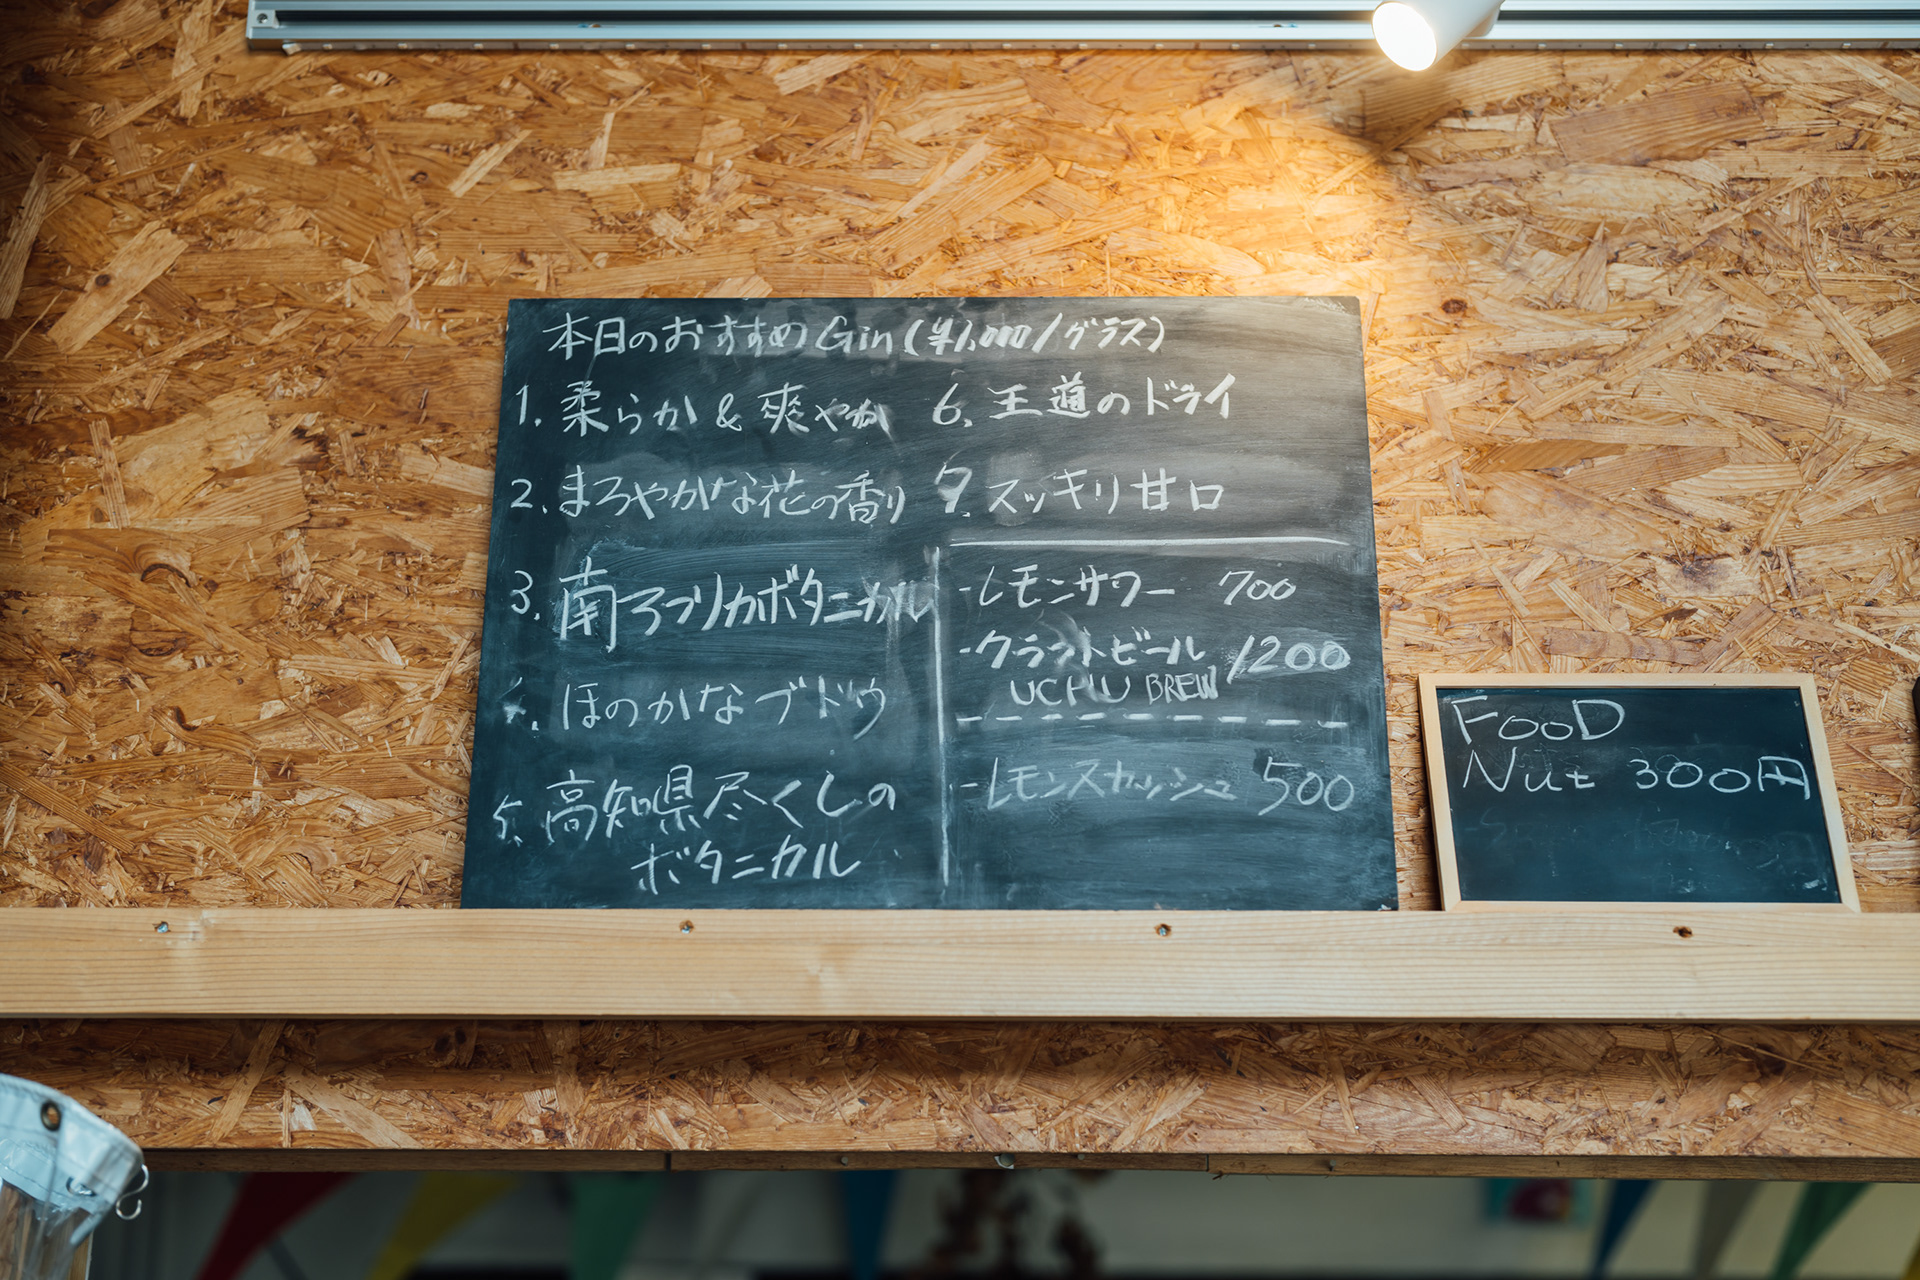 本日のおすすめGin(¥1,000/グラス)
1. 柔らか & 爽やか
2. まろやかな花の香り
3. 南アフリカボタニカル
4. ほのかなブドウ
5. 高知県尽くしの
ボタニカル
6. 王道のドライ
7. スッキリ甘口
-レモンサワー 700
-クラフトビール 1200
UCHU BREW
-レモンスカッシュ 500
FooD
Nut 300円